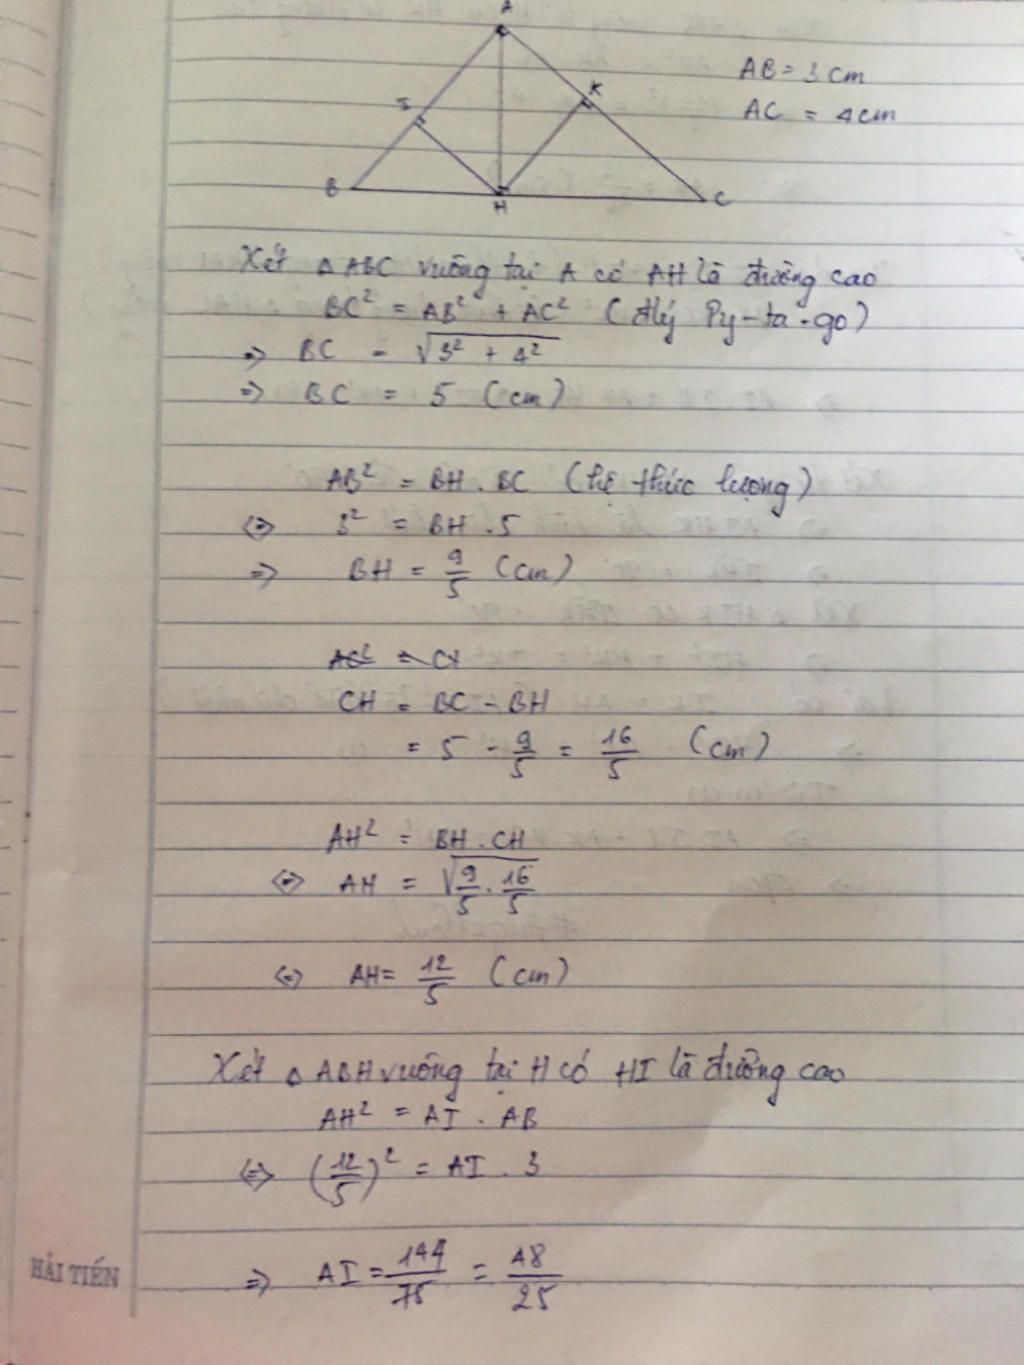 A
AB = 3cm
K
AC = 4cm
I
B
H
C
Xét △ ABC vuông tại A có AH là đường cao
BC² = AB² + AC² (đlý Py-ta-go)
=> BC = √3² + 4²
=> BC = 5 (cm)
AB² = BH . BC (hệ thức lượng)
<=> 3² = BH . 5
=> BH = 9/5 (cm)
AC² = CH
CH = BC - BH
= 5 - 9/5 = 16/5 (cm)
AH² = BH . CH
<=> AH = √9/5 . 16/5
<=> AH = 12/5 (cm)
Xét △ ABH vuông tại H có HI là đường cao
AH² = AI . AB
<=> (12/5)² = AI . 3
=> AI = 144/75 = 48/25
HẢI TIẾN